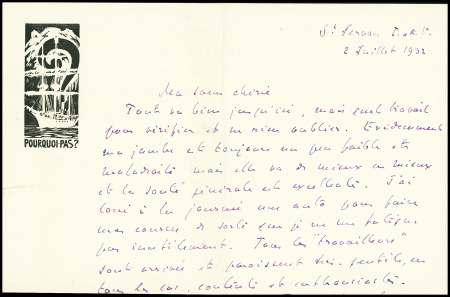 St Servan
2 Juillet 1932
POURQUOI-PAS?
Ma soeur chérie
Tout va bien jusqu'ici, mais quel travail
pour vérifier et ne rien oublier. Evidemment
ma jambe est toujours un peu faible et
maladroite mais elle va de mieux en mieux
et la santé générale est excellente. J'ai
loué à la journée une auto pour faire
mes courses de sorte que je ne me fatigue
pas inutilement. Tous les "travailleurs"
sont arrivés et paraissent gentils, en
tous les cas, contents et enthousiastes.